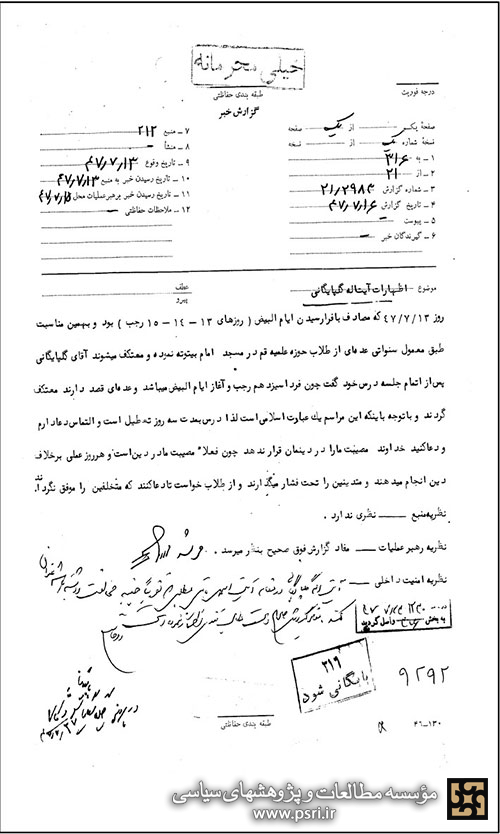 خیلی محرمانه
طبقه بندی حفاظتی
درجه فوریت
گزارش خبر
صفحه یک از یک صفحه
نسخه شماره یک از نسخه
۱ ـ به ۳۱۶
۲ ـ از ۲۱
۳ ـ شماره گزارش ۲۱/۲۹۸۴
۴ ـ تاریخ گزارش ۴۷/۷/۱۶
۵ ـ پیوست ـ
۶ ـ گیرندگان خبر ـ
۷ ـ منبع ۲۱۲
۸ ـ منشأ ـ
۹ ـ تاریخ وقوع ۴۷/۷/۱۳
۱۰ ـ تاریخ رسیدن خبر به منبع ۴۷/۷/۱۳
۱۱ ـ تاریخ رسیدن خبر برهبر عملیات محل ۴۷/۷/۱۵
۱۲ ـ ملاحظات حفاظتی ـ
موضوع ـ اظهارات آیت‌اله گلپایگانی
عطف
پیرو
روز ۴۷/۷/۱۳ که مصادف با فرارسیدن ایام البیض ( روزهای ۱۳ - ۱۴ - ۱۵ رجب ) بود و بهمین مناسبت
طبق معمول سنواتی عده‌ای از طلاب حوزه علمیه قم در مسجد امام بیتوته نموده و معتکف میشوند آقای گلپایگانی
پس از اتمام جلسه درس خود گفت چون فردا سیزدهم رجب و آغاز ایام البیض میباشد و عده‌ای قصد دارند معتکف
گردند و با توجه باینکه این مراسم یک عبادت اسلامی است لذا درس بمدت سه روز تعطیل است و التماس دعا دارم
و دعا کنید خداوند مصیبت ما را در دینمان قرار ندهد چون فعلا" مصیبت ما در دین است و هر روز عملی برخلاف
دین انجام میدهند و متدینین را تحت فشار میگذارند و از طلاب خواست تا دعا کنند که متخلفین را موفق نگرداند.
نظریه منبع ـ نظری ندارد .
نظریه رهبر عملیات ـ مفاد گزارش فوق صحیح بنظر میرسد .
نظریه امنیت داخلی ـ
به بخش واصل گردید
۳۱۶
بایگانی شود
۹۲۹۲
طبقه بندی حفاظتی
۴۶-۱۳۰
مؤسسه مطالعات و پژوهشهای سیاسی
www.psri.ir